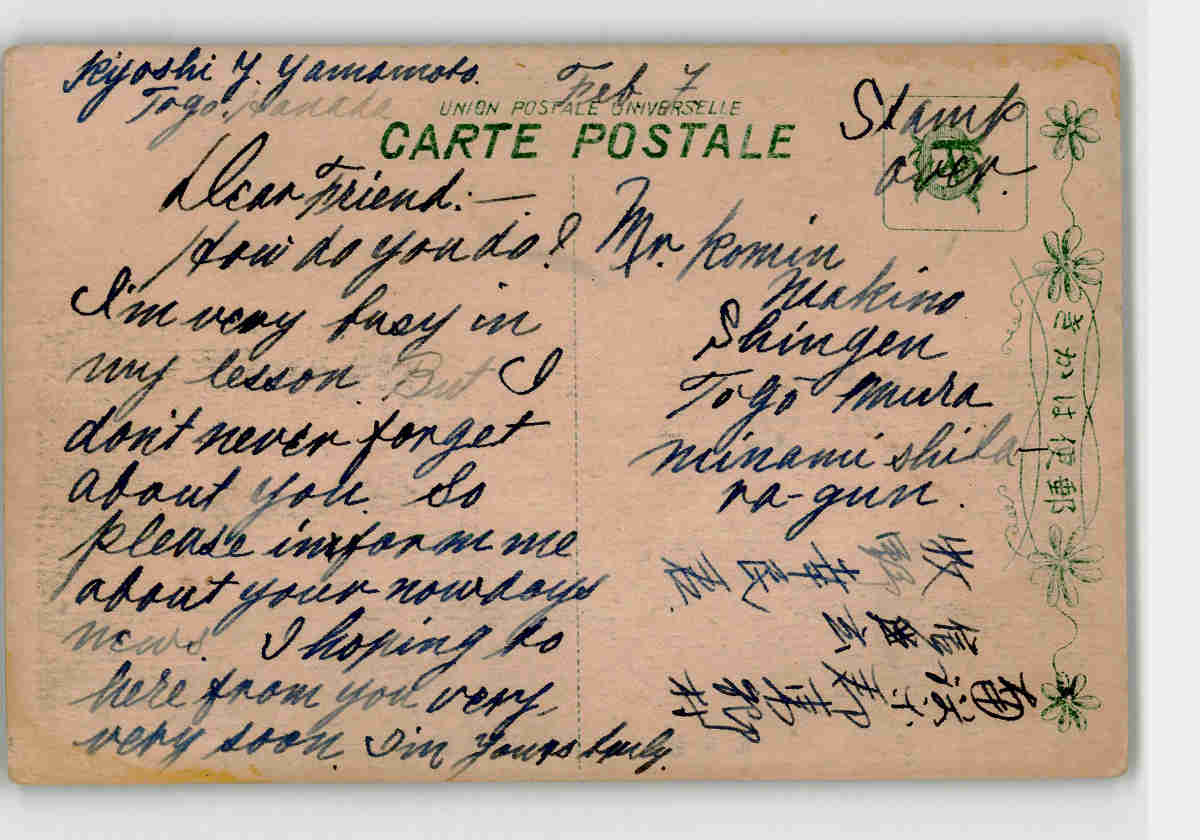 Kiyoshi Y. Yamamoto. Feb 7
Togo. Hanada
UNION POSTALE UNIVERSELLE
CARTE POSTALE
Stamp
over.
Dear Friend:—.
How do you do?
I'm very busy in
my lesson. But I
don't never forget
about you. So
please inxform me
about your nowdays
news. I hoping to
here from you very,
very soon. I'm yours truly.
Mr. Komin
Makino
Shingen
Togō mura
minami shitara-
ra-gun.
きかは便郵
牧野
幸民君
信玄
東郷村